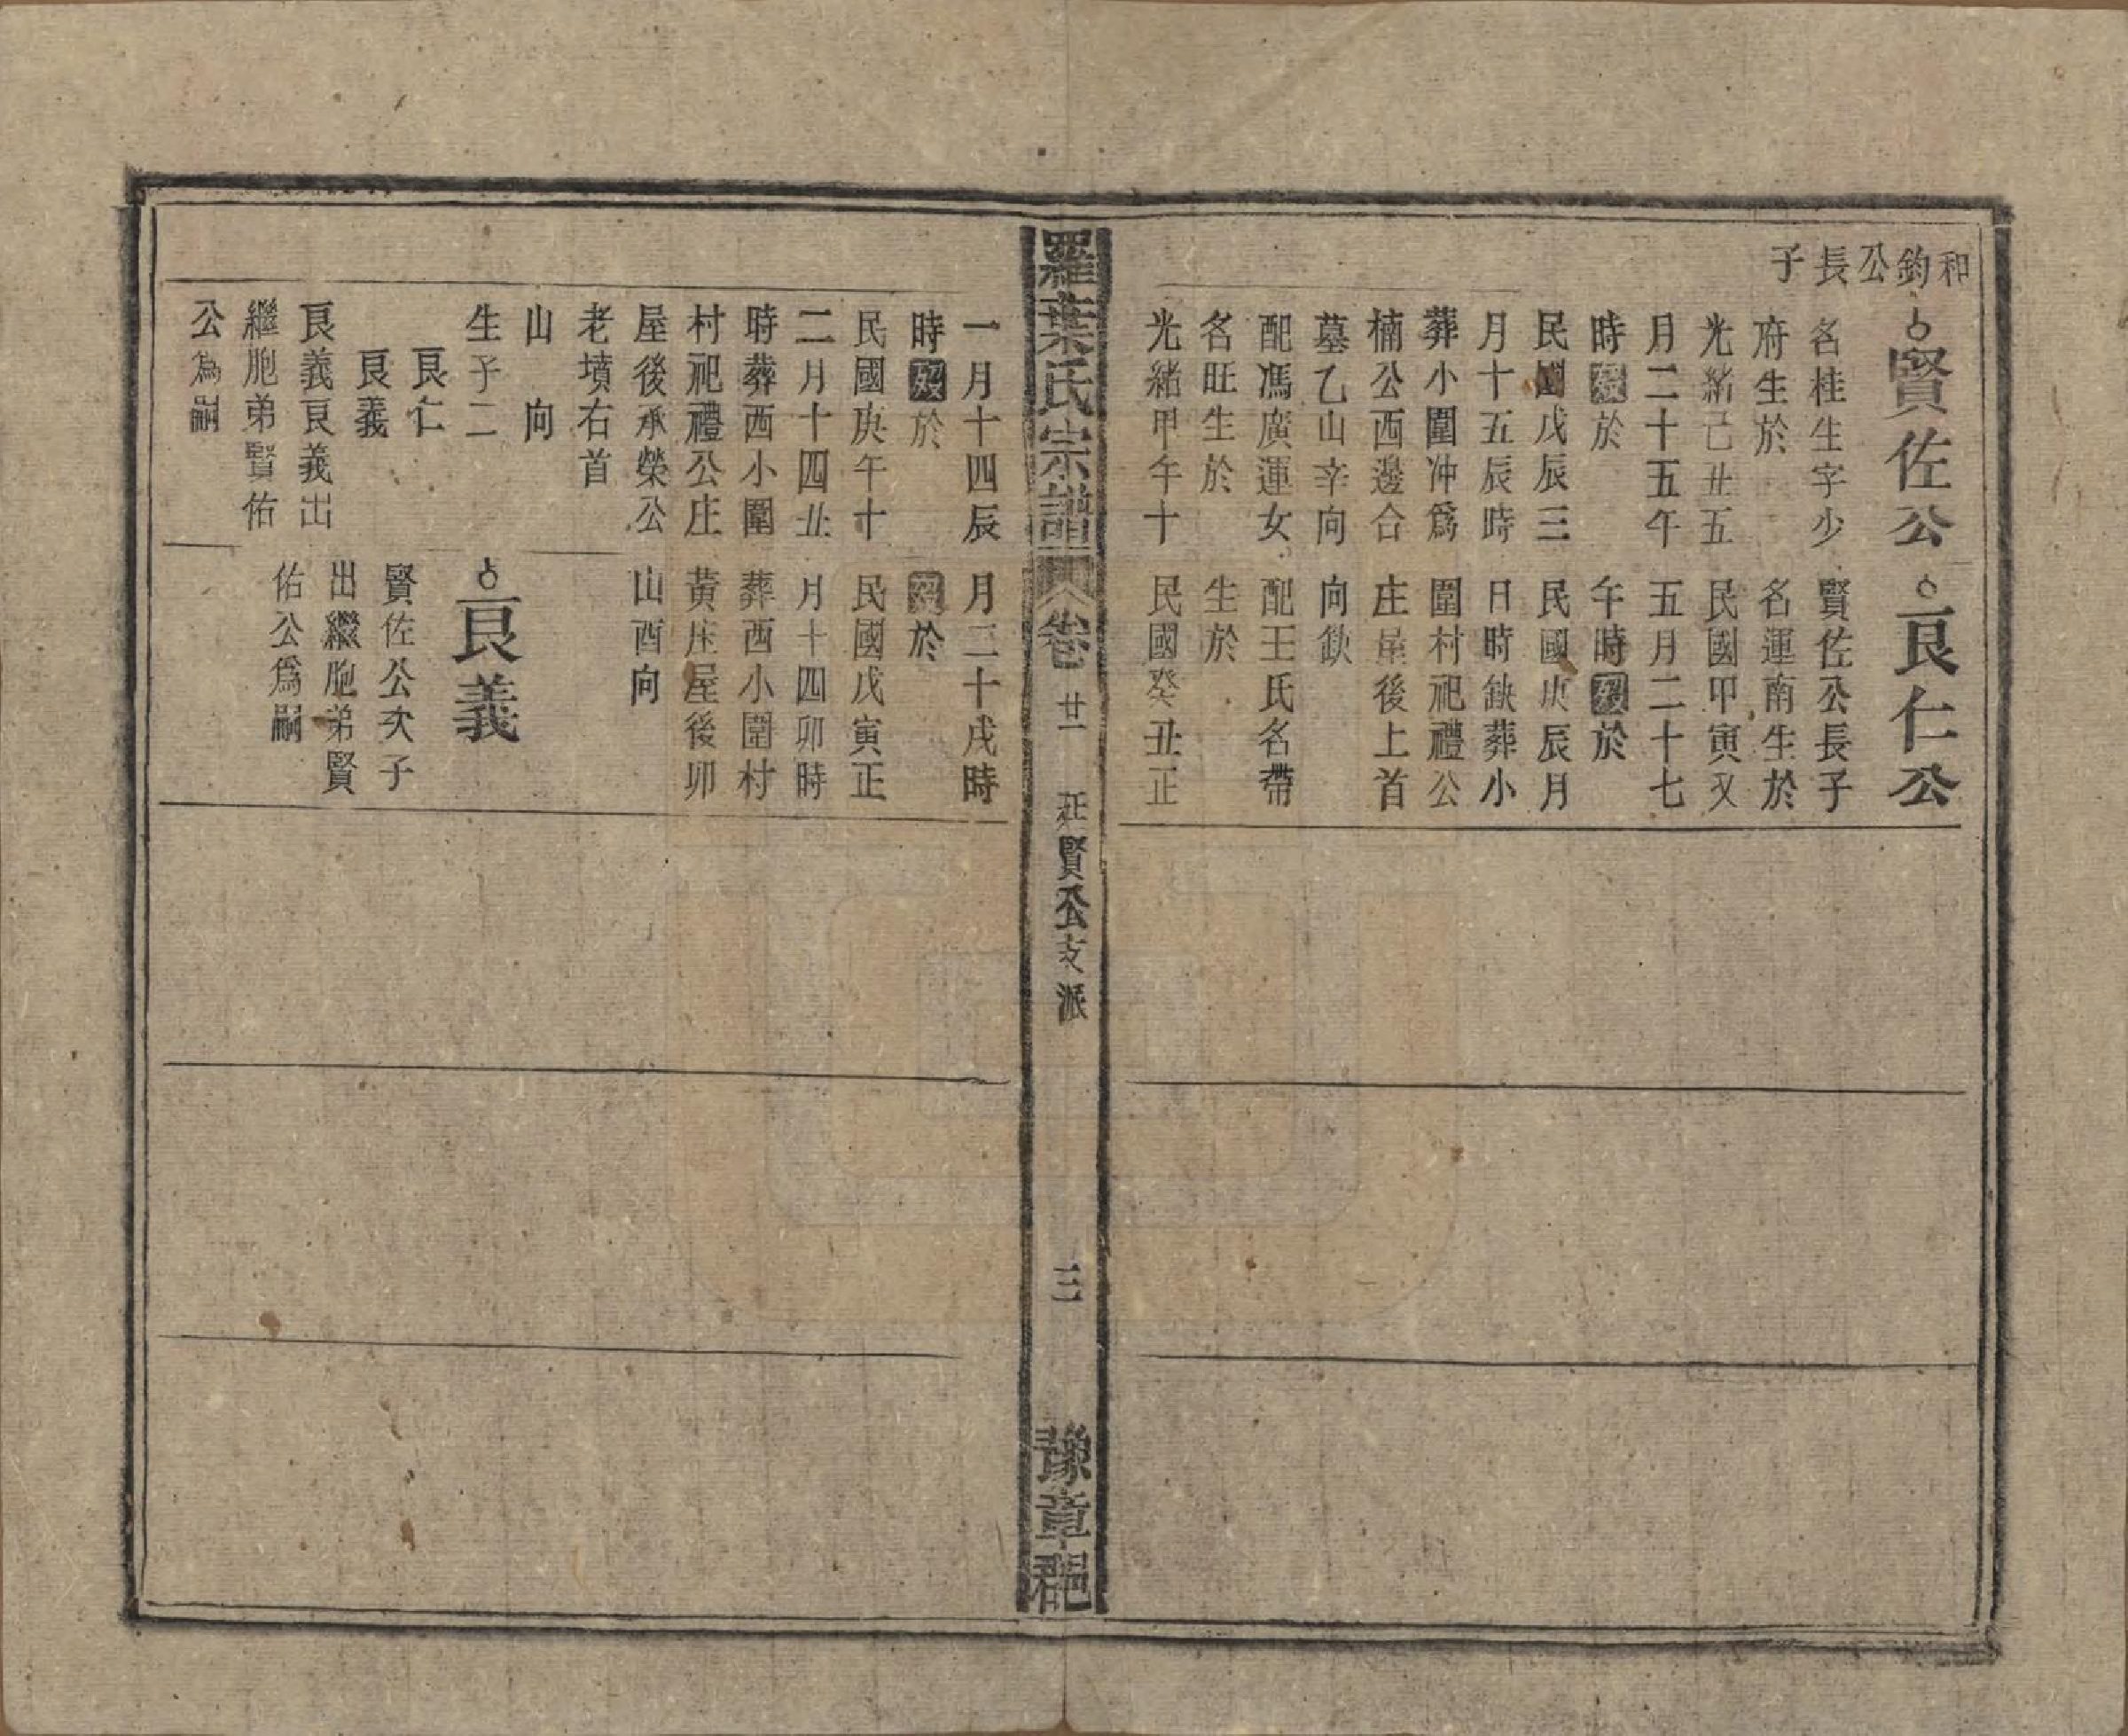 和鈞公長子
賢佐公
名桂生字少
府生於
光緒己丑五
月二十五午
時歿於
民國戊辰三
月十五辰時
葬小圍冲爲
楠公西邊合
墓乙山辛向
配馮廣運女
名旺生於
光緒甲午十
一月十四辰
時歿於
民國庚午十
二月十四丑
時葬西小圍
村祀禮公庄
屋後承榮公
老墳右首
山　向
生子二
良仁
良義
良義良義出
繼胞弟賢佑
公為嗣
良仁公
賢佐公長子
名運南生於
民國甲寅又
五月二十七
午時歿於
民國庚辰月
日時缺葬小
圍村祀禮公
庄屋後上首
向缺
配王氏名帶
生於
民國癸丑正
月二十戌時
歿於
民國戊寅正
月十四卯時
葬西小圍村
黃庄屋後卯
山酉向
良義
賢佐公次子
出繼胞弟賢
佑公爲嗣
羅葉氏宗譜
卷廿一
廷賢公支派
三
豫章郡